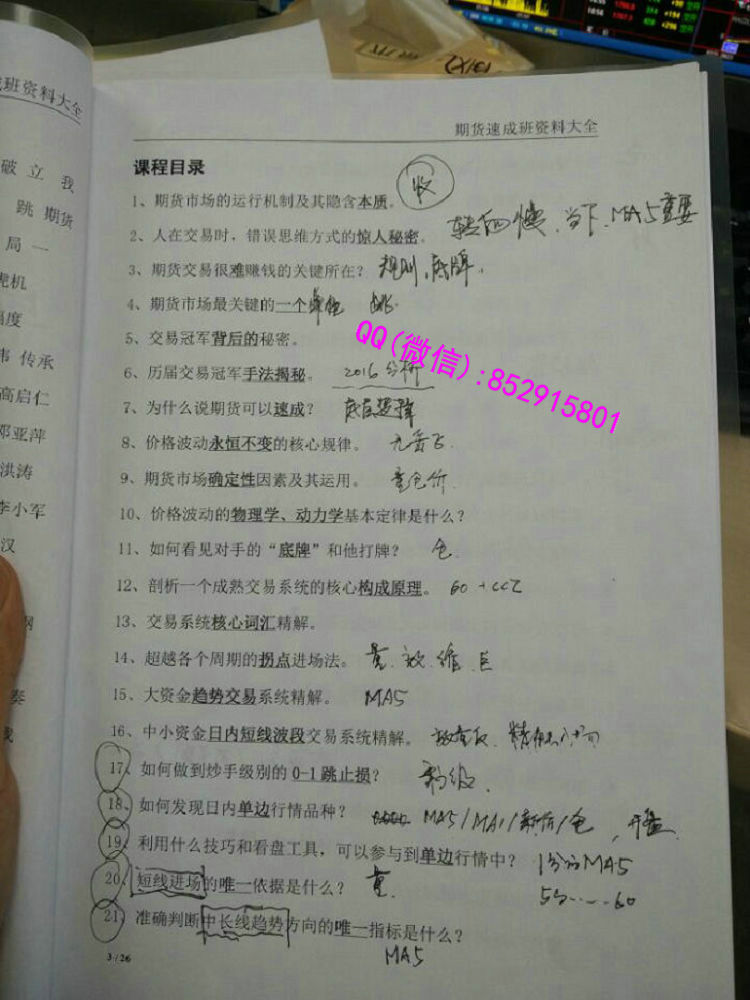 期货速成班资料大全
班资料大全
破 立 我
跳 期货
局 一
虎机
幅度
韦 传承
高启仁
邓亚萍
洪涛
李小军
汉
奏
课程目录
1、期货市场的运行机制及其隐含本质。 收
2、人在交易时，错误思维方式的惊人秘密。 MA5重要
3、期货交易很难赚钱的关键所在？ 规则、底牌。
4、期货市场最关键的一个
5、交易冠军背后的秘密。
QQ(微信):852915801
6、历届交易冠军手法揭秘。 2016分析
7、为什么说期货可以速成？
8、价格波动永恒不变的核心规律。
9、期货市场确定性因素及其运用。 量仓价
10、价格波动的物理学、动力学基本定律是什么？
11、如何看见对手的“底牌”和他打牌？ 仓
12、剖析一个成熟交易系统的核心构成原理。 60+CCI
13、交易系统核心词汇精解。
14、超越各个周期的拐点进场法。 量
15、大资金趋势交易系统精解。 MA5
16、中小资金日内短线波段交易系统精解。
17、如何做到炒手级别的 0-1 跳止损？ 秒级.
18、如何发现日内单边行情品种？ MA5/ 仓, 开盘
19、利用什么技巧和看盘工具，可以参与到单边行情中？ 1分的MA5
20、短线进场的唯一依据是什么？ 量. 5分……60
21、准确判断中长线趋势方向的唯一指标是什么？
MA5
3/26